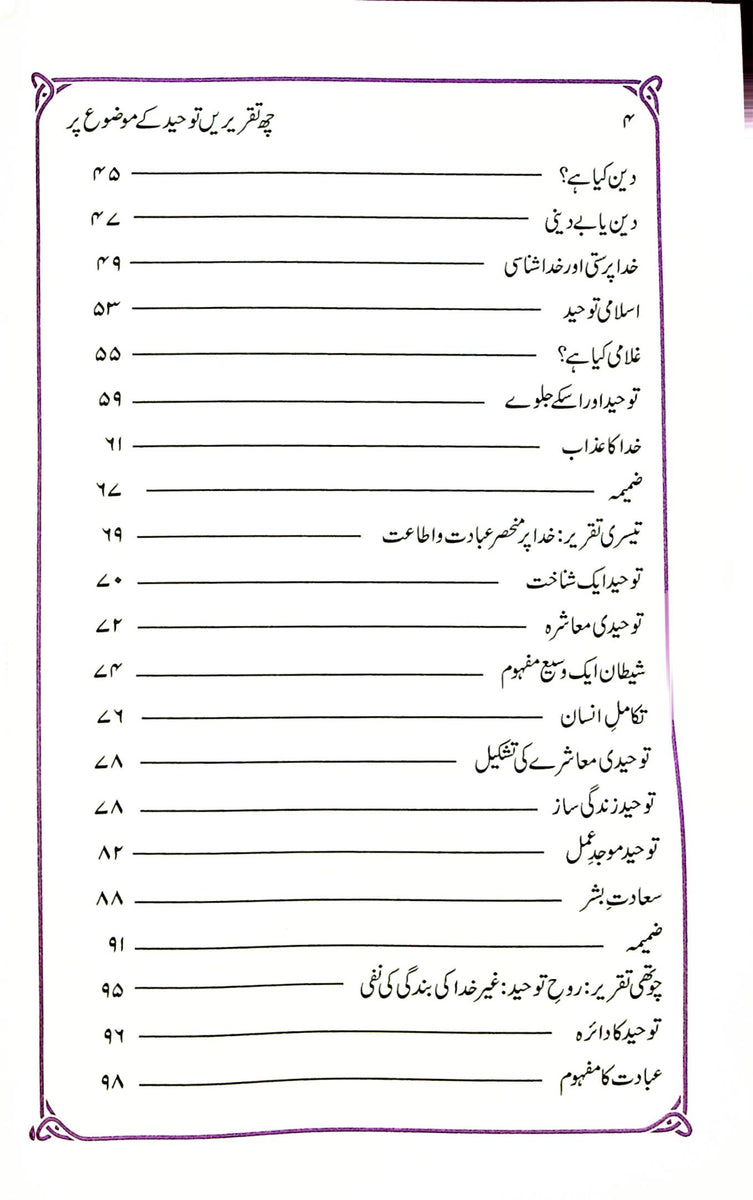 ۴ چھ تقریریں توحید کے موضوع پر
دین کیا ہے؟ ۴۵
دین یا بے دینی ۴۷
خدا پرستی اور خدا شناسی ۴۹
اسلامی توحید ۵۳
غلامی کیا ہے؟ ۵۵
توحید اور اسکے جلوے ۵۹
خدا کا عذاب ۶۱
ضمیمہ ۶۷
تیسری تقریر: خدا پر منحصر عبادت و اطاعت ۶۹
توحید ایک شناخت ۷۰
توحیدی معاشرہ ۷۲
شیطان ایک وسیع مفہوم ۷۴
تکاملِ انسان ۷۶
توحیدی معاشرے کی تشکیل ۷۸
توحید زندگی ساز ۷۸
توحید موجدِ عمل ۸۲
سعادتِ بشر ۸۸
ضمیمہ ۹۱
چوتھی تقریر: روحِ توحید: غیر خدا کی بندگی کی نفی ۹۵
توحید کا دائرہ ۹۶
عبادت کا مفہوم ۹۸